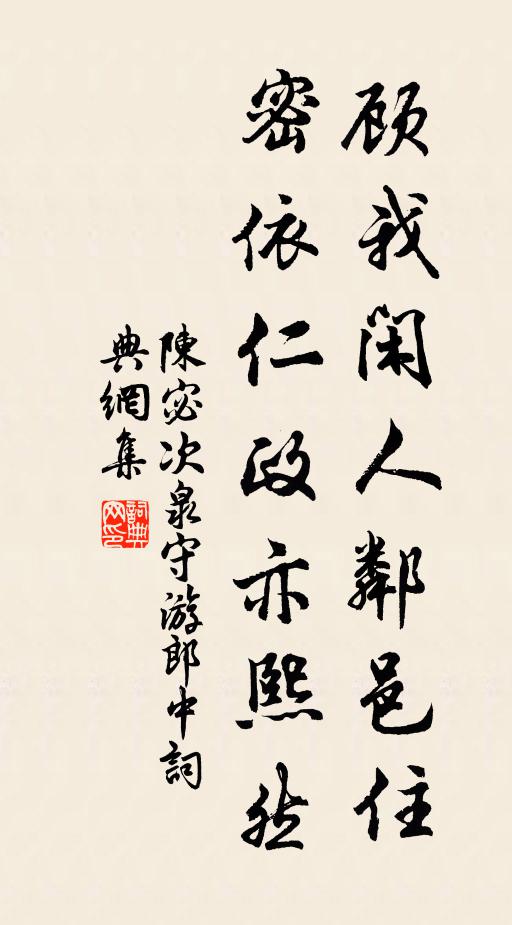 顾我閑人鄰邑住
密依仁政亦熙然
陳宓次泉守游郎中詞
典網集
詞典
网印